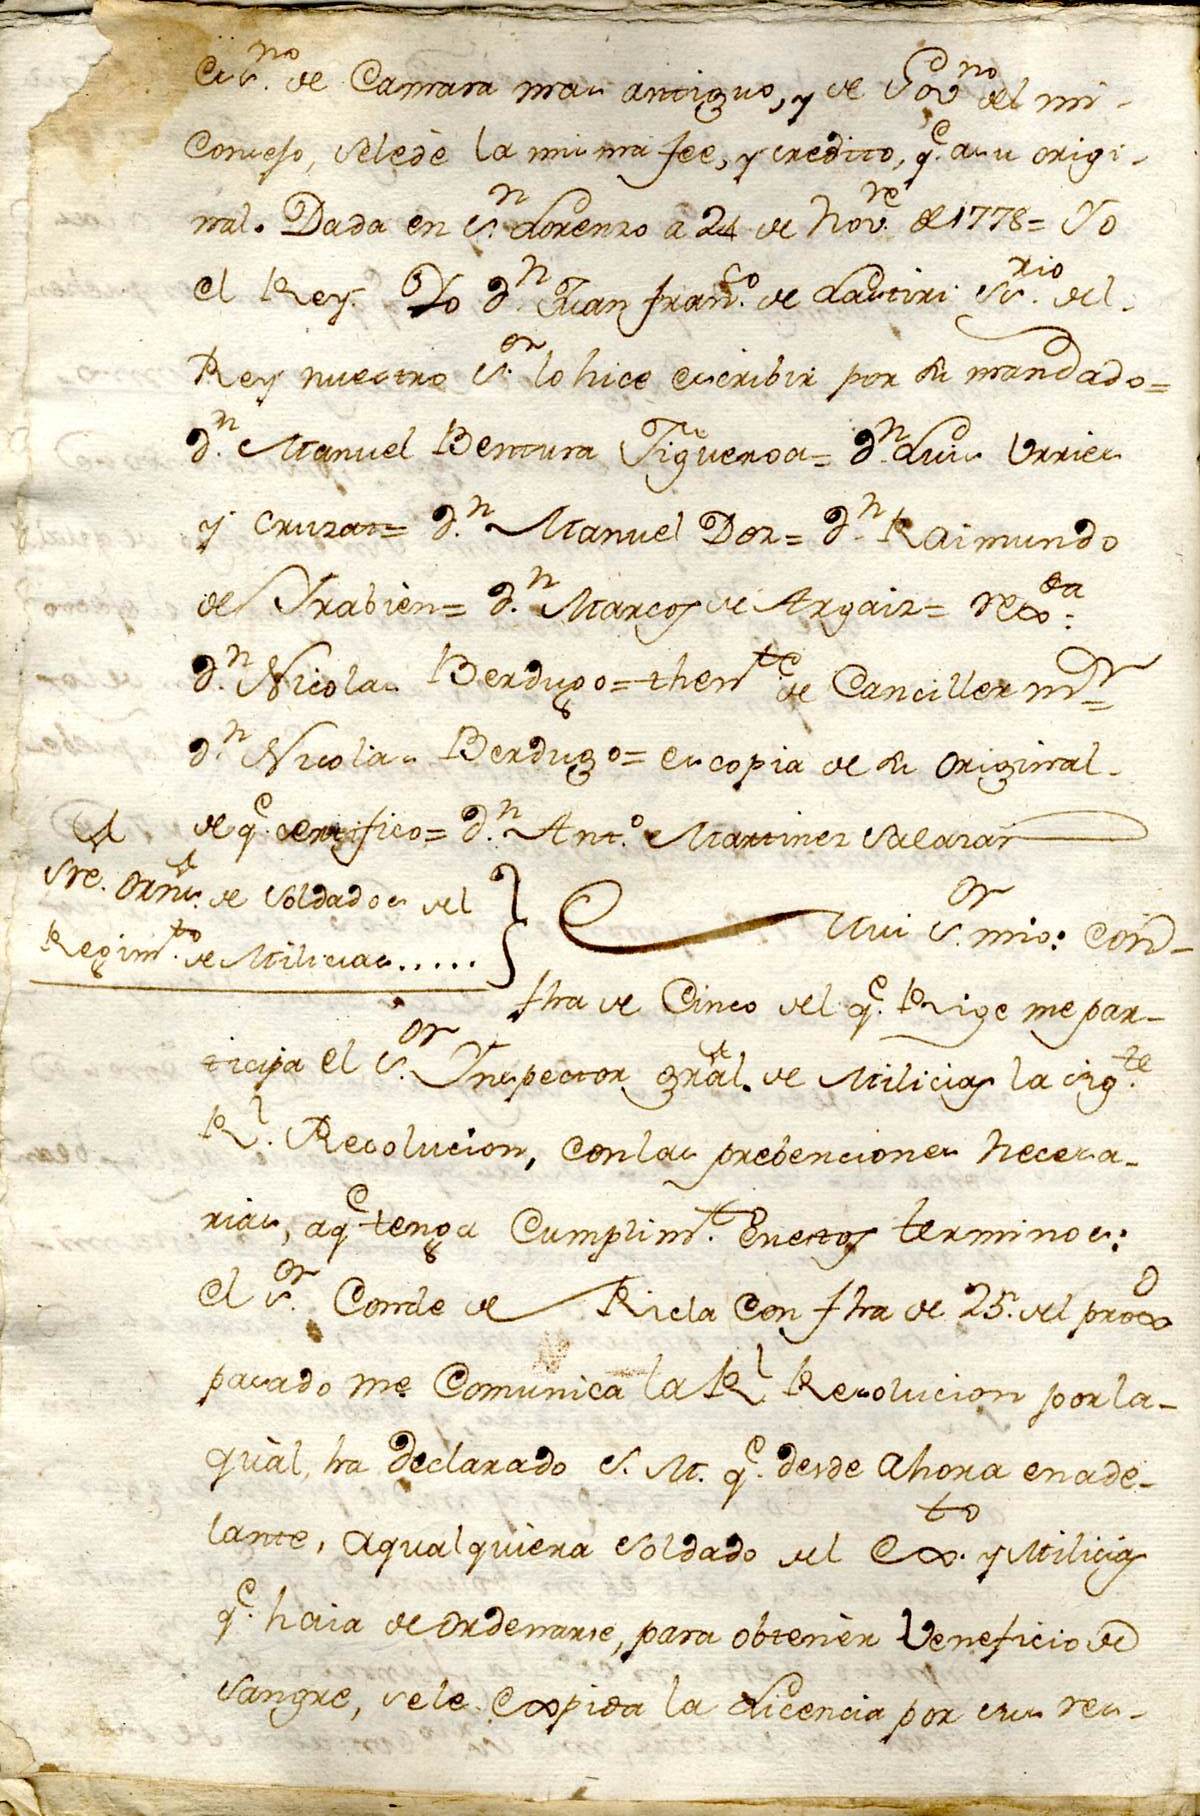 Essno. de Camara mas antiguo, y de Govno del mi-
Consejo, se le dè la misma fee, y credito, qe. a su origi-
nal. Dada en Sn. Lorenzo a 24 de Novre. de 1778= Yo
el Rey. Yo Dn. Juan Franco. de Lastiri Ssrio. del-
Rey nuestro Sor. lo hice escribir por su mandado=
Dn. Manuel Bentura Figueroa= Dn. Luis Urries
y Cruzat= Dn. Manuel Doz= Dn. Raimundo
de Yrabièn= Dn. Marcos de Argaiz= rexda:
Dn. Nicolas Berdugo= thente. de Canciller mor=
Dn. Nicolas Berdugo= es copia de su original-
de qe. certifico= Dn. Anto. Martinez Salazar
Sre. Orns. de Soldados del
Regimto. de Milicias.....
Mui Sor. mio: Con-
fha de Cinco del qe. Rige me par-
ticipa el Sor. Ynspector gral. de Milicias la sigte.
Rl. Resolucion, con las prebenciones necesa-
rias, a qe tenga Cumplimto. en estos terminos:
el Sor. Conde de Ricla Con fha de 25. del proxo
pasado me Comunica la Rl Resolucion por la-
quàl, ha declarado S. M. qe. desde ahora en ade-
lante, a qualquiera Soldado del Exto. y Milicias
qe. haia de ordenarse, para obtenèr Veneficio de
sangre, se le expida la Licencia por sus res-